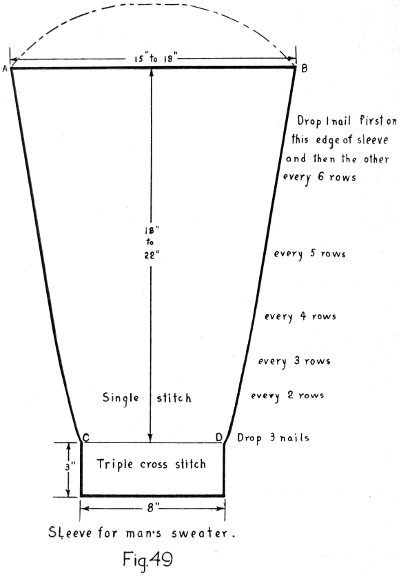 15" to 18"
A
B
Drop 1 nail first on
this edge of sleeve
and then the other
every 6 rows
18"
to
22"
every 5 rows
every 4 rows
every 3 rows
every 2 rows
Single stitch
C
D
Drop 3 nails
3"
Triple cross stitch
8"
Sleeve for man's sweater.
Fig.49